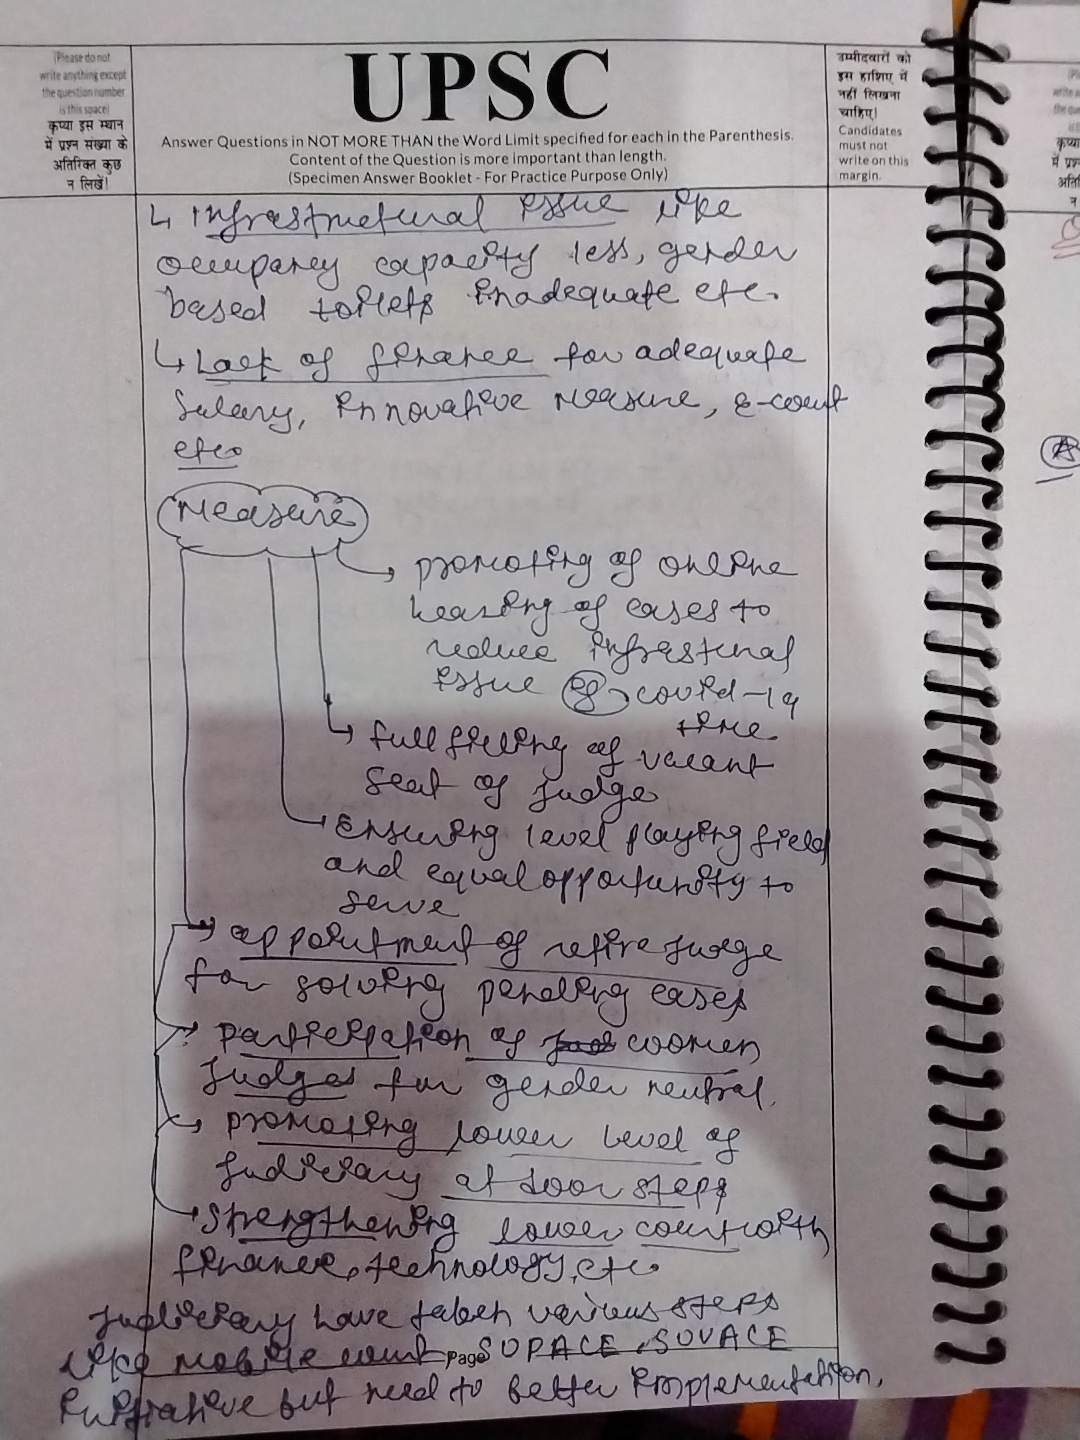 (Please do not
write anything except
the question number
is this space)
कृप्या इस स्थान
में प्रश्न संख्या के
अतिरिक्त कुछ
न लिखें!
UPSC
Answer Questions in NOT MORE THAN the Word Limit specified for each in the Parenthesis.
Content of the Question is more important than length.
(Specimen Answer Booklet - For Practice Purpose Only)
उम्मीदवारों को
इस हाशिए में
नहीं लिखना
चाहिए!
Candidates
must not
write on this
margin.
↳ Infrastructural issue like
occupancy capacity less, gender
based toilets inadequate etc.
↳ Lack of finance for adequate
salary, innovative measure, e-court
etc.
Measure
→ promoting of online
hearing of cases to
reduce infrastural
issue eg covid-19
time
↳ full filling of vacant
seat of judge
→ Ensuring level playing field
and equal opportunity to
serve
→ appointment of retire judge
for solving pending cases
→ participation of women
judges for gender neutral.
→ promoting lower level of
judiciary at door steps
→ Strengthening lower court with
finance, technology, etc.
Judiciary have taken various steps
like mobile court, SUPACE, SUVACE
Page
initiative but need to better implementation.